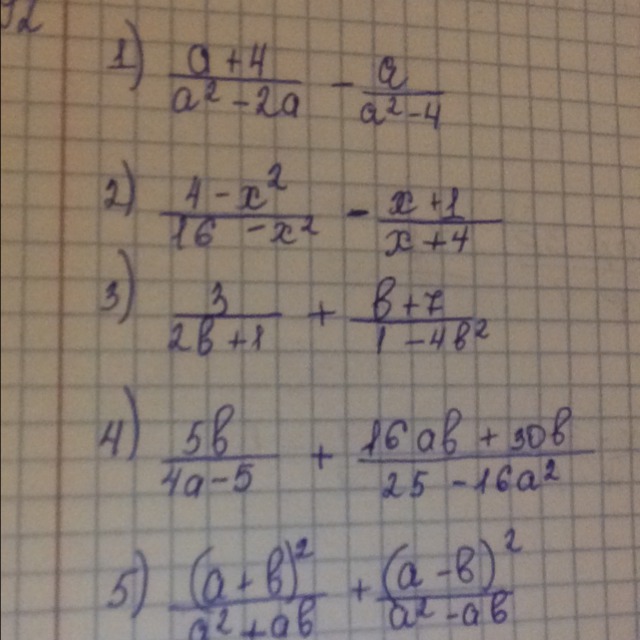 1) (a+4)/(a²-2a) - a/(a²-4)
2) (4-x²)/(16-x²) - (x+1)/(x+4)
3) 3/(2b+1) + (b+7)/(1-4b²)
4) 5b/(4a-5) + (16ab+30b)/(25-16a²)
5) (a+b)²/(a²+ab) + (a-b)²/(a²-ab)